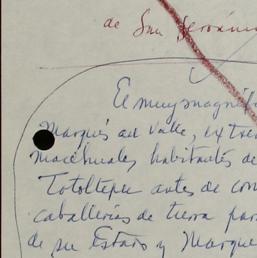 de San Jerónimo
El muy magnífi
Marqués del Valle, extre
macehuales habitantes de
Totoltepec antes de con
caballerías de tierra par
de su Estado y Marque